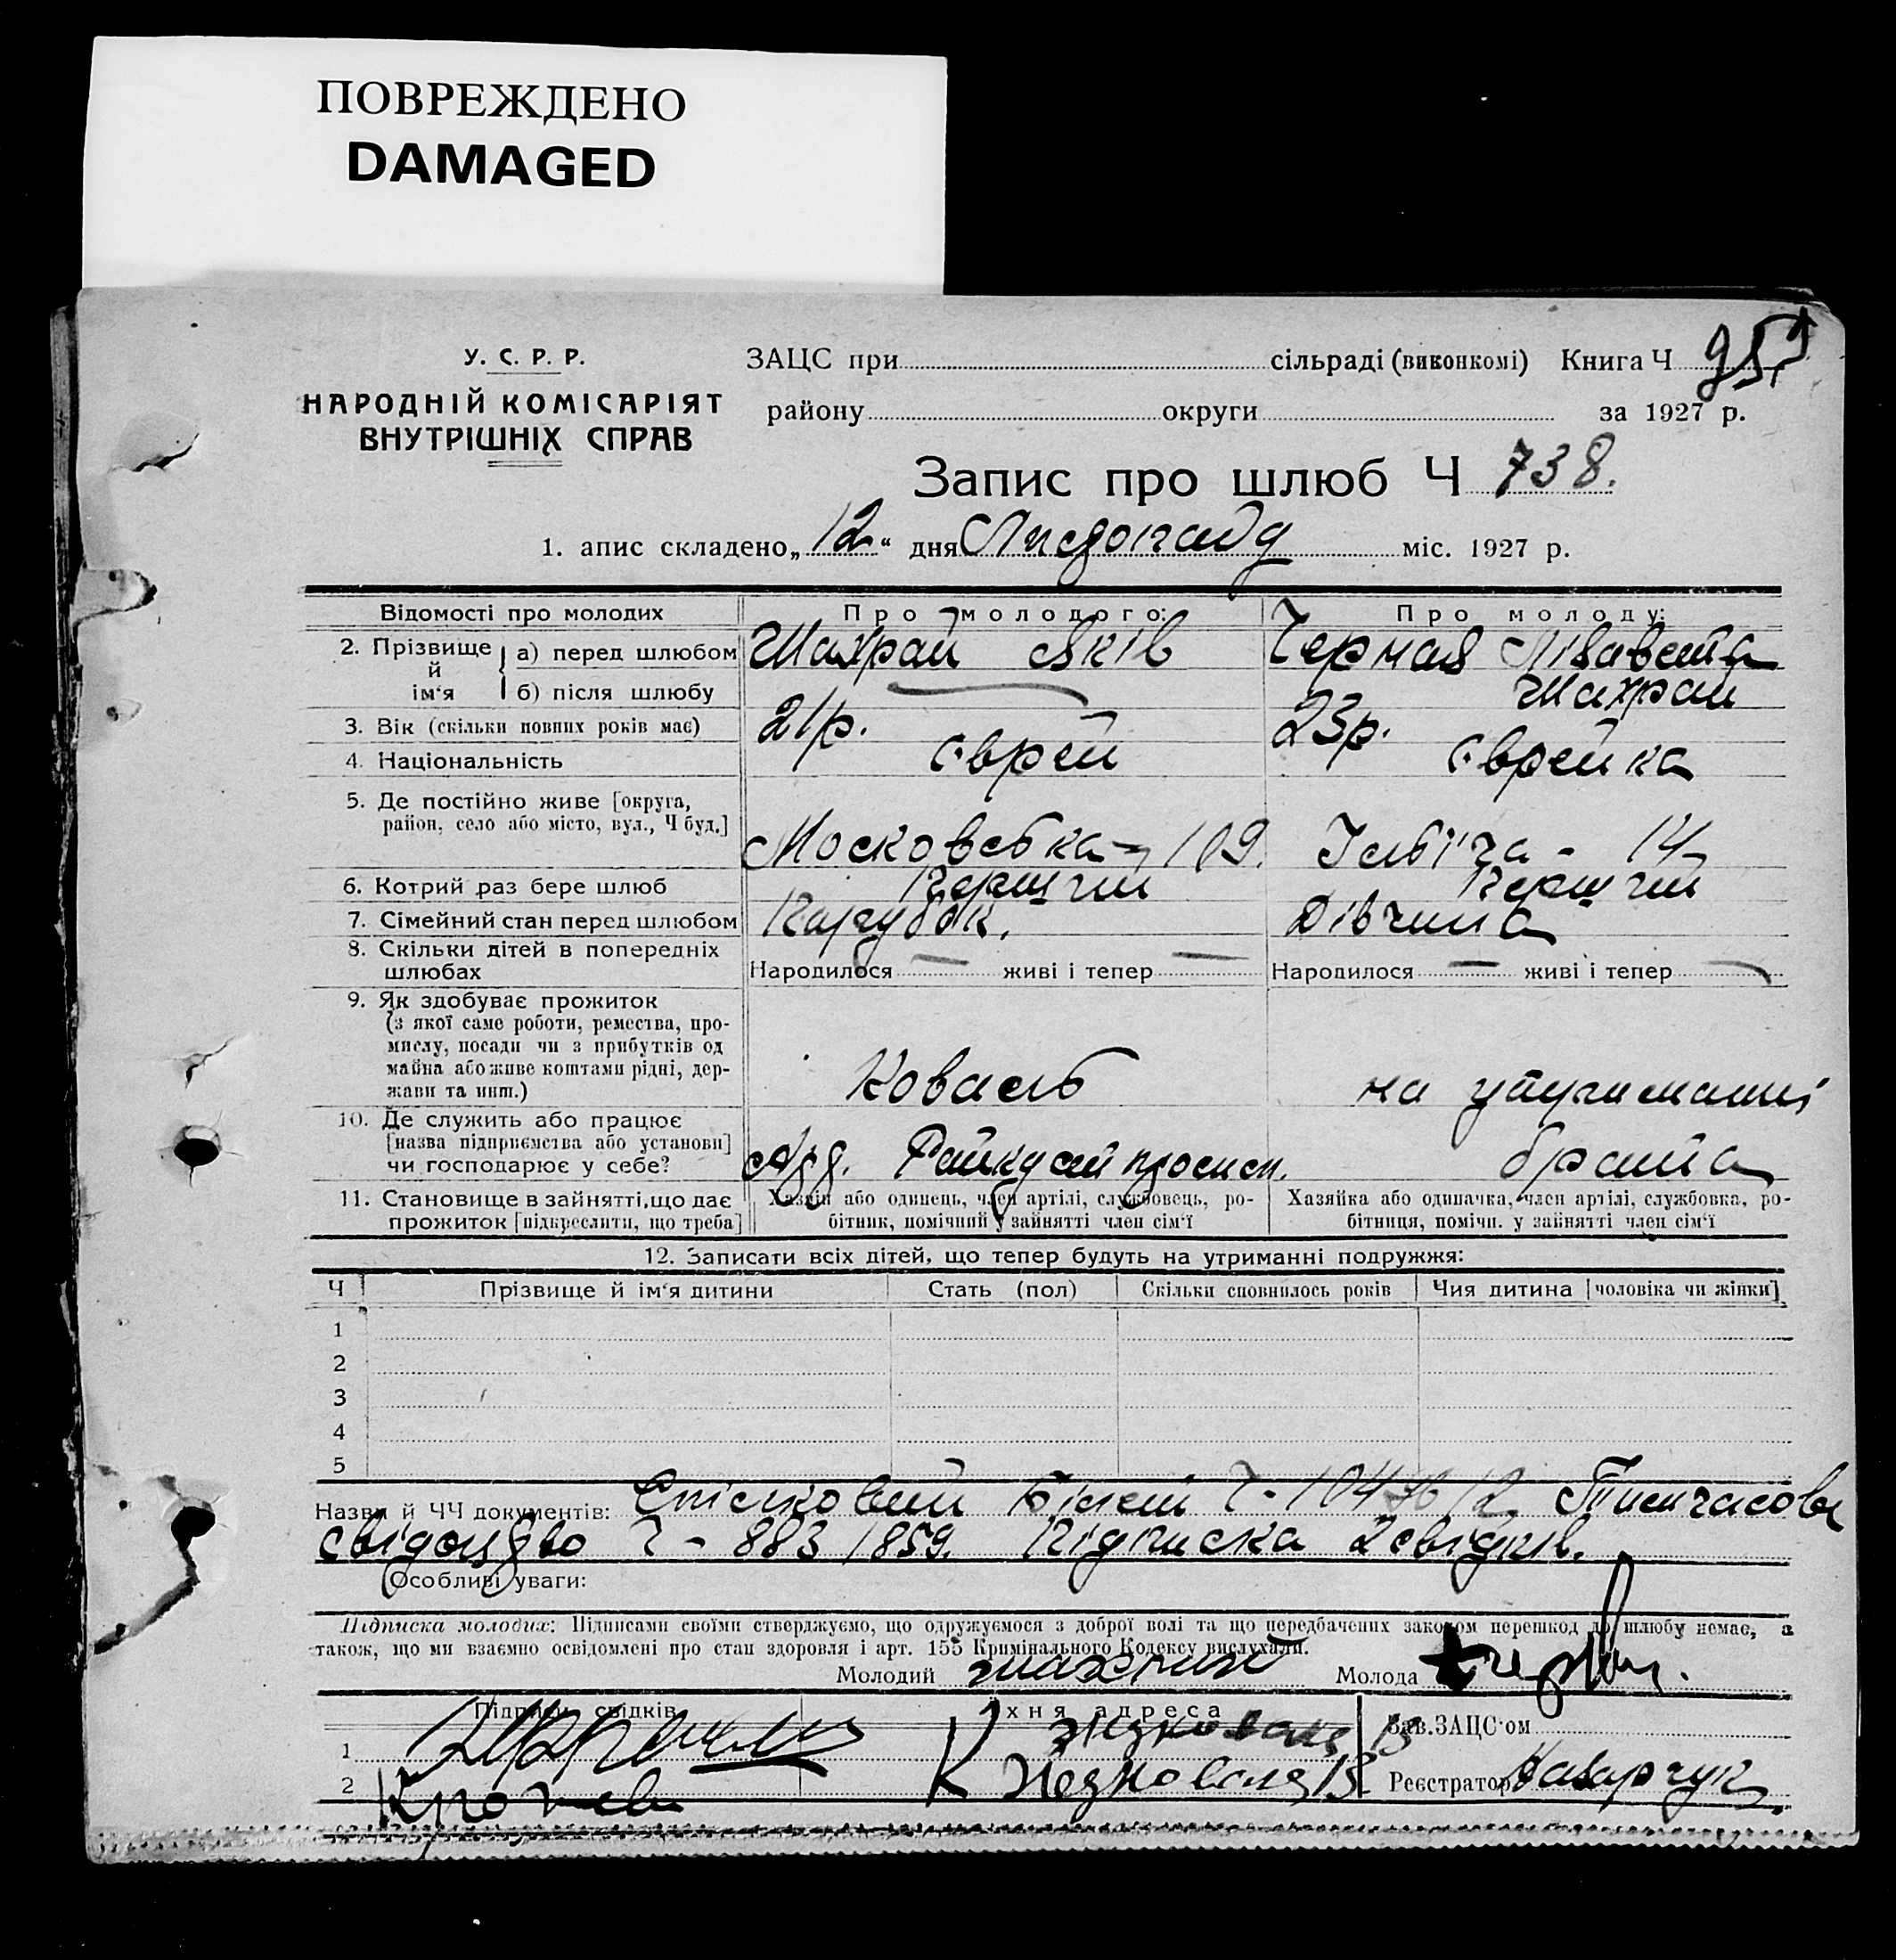 ПОВРЕЖДЕНО
DAMAGED
У. С. Р. Р.
НАРОДНІЙ КОМІСАРІЯТ
ВНУТРІШНІХ СПРАВ
ЗАЦС при сільраді (виконкомі) Книга Ч
району округи за 1927 р.
Запис про шлюб Ч 738.
1. апис складено „12“ дня Листопаду міс. 1927 р.
Відомості про молодих Про молодого: Про молоду:
2. Прізвище й ім'я а) перед шлюбом Шахрай Яків Черная Лізавета
б) після шлюбу Шахрай
3. Вік (скільки повних років має) 21р. 23р.
4. Національність Єврей Єврейка
5. Де постійно живе [округа,
район, село або місто, вул., Ч буд.] Московська - 109. Ілліча - 14
6. Котрий раз бере шлюб Перший Перший
7. Сімейний стан перед шлюбом Парубок. Дівчина
8. Скільки дітей в попередніх
шлюбах Народилося — живі і тепер — Народилося — живі і тепер —
9. Як здобуває прожиток
(з якої саме роботи, ремества, про-
мислу, посади чи з прибутків од
майна або живе коштами рідні, дер-
жави та инш.) Коваль на утриманні
10. Де служить або працює
[назва підприємства або установи]
чи господарює у себе? брата
11. Становище в зайнятті, що дає
прожиток [підкреслити, що треба]
Хазяїн або одинець, член артілі, службовець, ро-
бітник, помічний у зайнятті член сім'ї
Хазяйка або одиначка, член артілі, службовка, ро-
бітниця, помічн. у зайнятті член сім'ї
12. Записати всіх дітей, що тепер будуть на утриманні подружжя:
Ч Прізвище й ім'я дитини Стать (пол) Скільки сповнилось років Чия дитина [чоловіка чи жінки]
1
2
3
4
5
Назви й ЧЧ документів: Спілковий Білет Ч - Тимчасове
свідоцтво Ч - 883/1859. Підписка 2 свідків.
Особливі уваги:
Підписка молодих: Підписами своїми стверджуємо, що одружуємося з доброї волі та що передбачених законом перешкод до шлюбу немає, а
також, що ми взаємно освідомлені про стан здоровля і арт. 155 Кримінального Кодексу вислухали.
Молодий Молода
Підписи свідків Їхня адреса Зав. ЗАЦС'ом
1
2 Реєстратор